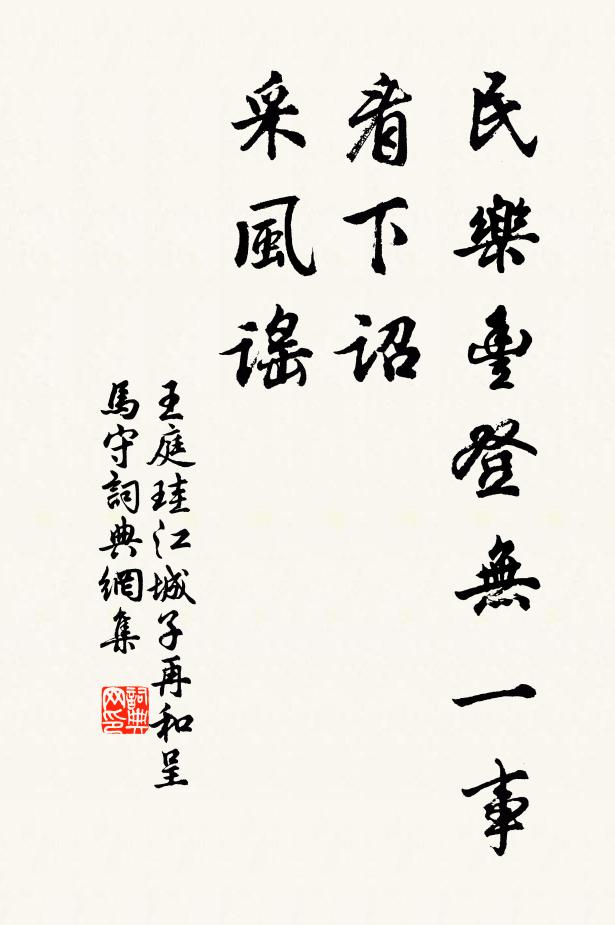 民樂豊登無一事
看下詔
采風謠
王庭珪江城子再和呈
馬守詞典網集
詞典网印